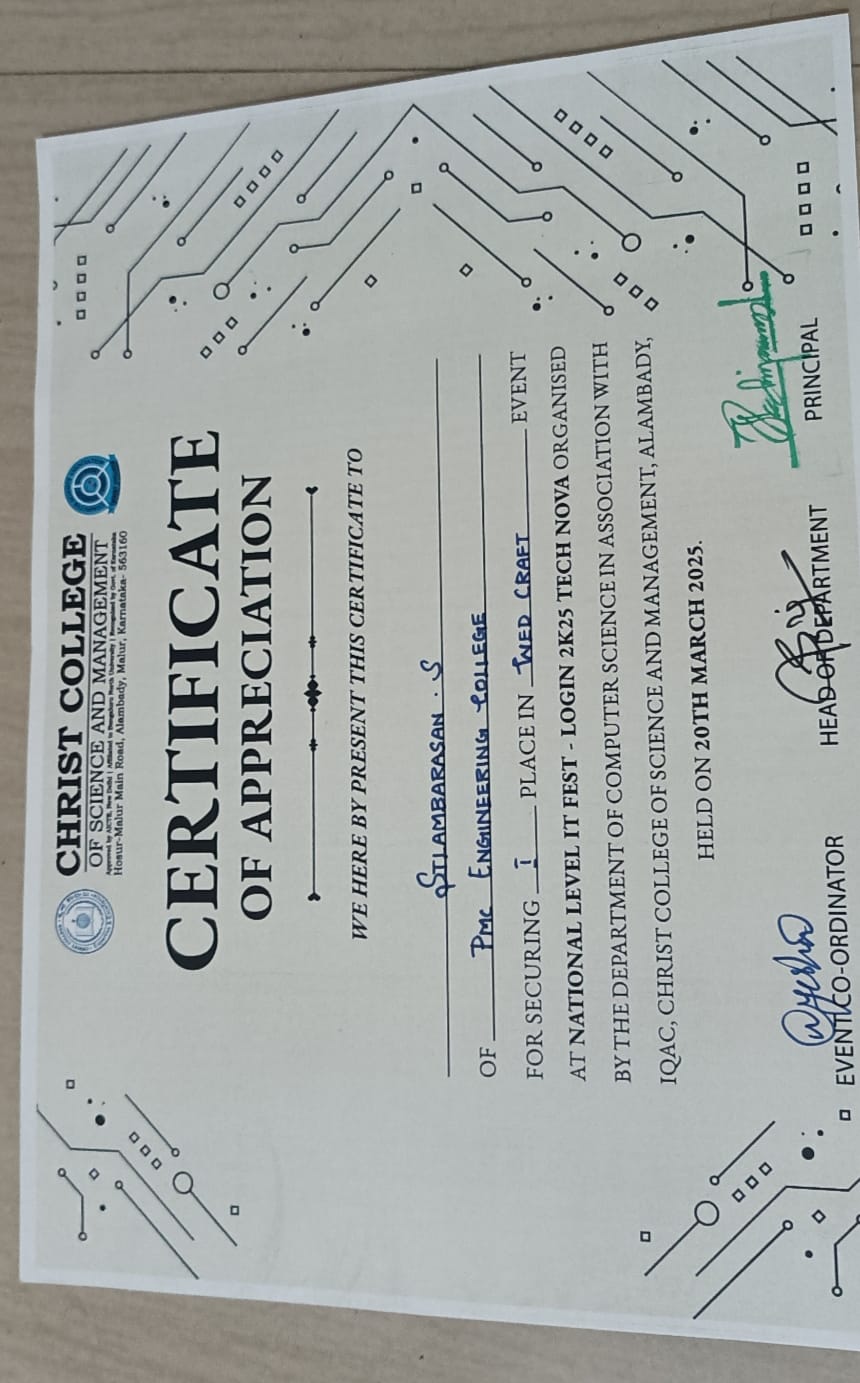 CHRIST COLLEGE
OF SCIENCE AND MANAGEMENT
Approved by AICTE, New Delhi | Affiliated to Bengaluru North University | Recognised by Govt. of Karnataka
Hosur-Malur Main Road, Alambady, Malur, Karnataka- 563160
CERTIFICATE
OF APPRECIATION
WE HERE BY PRESENT THIS CERTIFICATE TO
SILAMBARASAN . S
OF PMC ENGINEERING COLLEGE
FOR SECURING I PLACE IN WED CRAFT EVENT
AT NATIONAL LEVEL IT FEST - LOGIN 2K25 TECH NOVA ORGANISED
BY THE DEPARTMENT OF COMPUTER SCIENCE IN ASSOCIATION WITH
IQAC, CHRIST COLLEGE OF SCIENCE AND MANAGEMENT, ALAMBADY,
HELD ON 20TH MARCH 2025.
EVENT CO-ORDINATOR HEAD OF DEPARTMENT PRINCIPAL